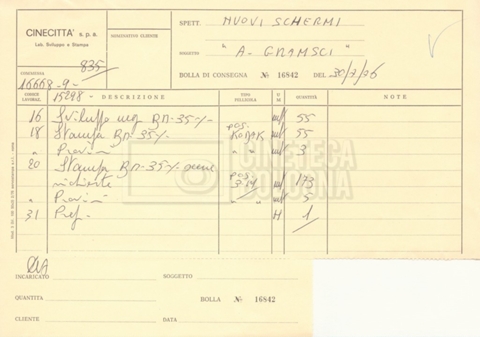 CINECITTÀ s.p.a.
Lab. Sviluppo e Stampa
NOMINATIVO CLIENTE
SPETT. NUOVI SCHERMI
SOGGETTO "A. GRAMSCI"
835
COMMESSA
16668-9-
BOLLA DI CONSEGNA № 16842 DEL 30/7/76
CODICE LAVORAZ. DESCRIZIONE TIPO PELLICOLA U M QUANTITÀ NOTE
15298-
16 Sviluppo neg BN-35% mt 55
18 Stampa BN-35% pos. KODAK mt 55
" Provini " " mt 3
20 Stampa BN-35% pos. mt 173
richieste
" Provini " " mt 5
31 H 1
CINETECA
BOLOGNA
INCARICATO SOGGETTO
QUANTITA BOLLA № 16842
CLIENTE DATA